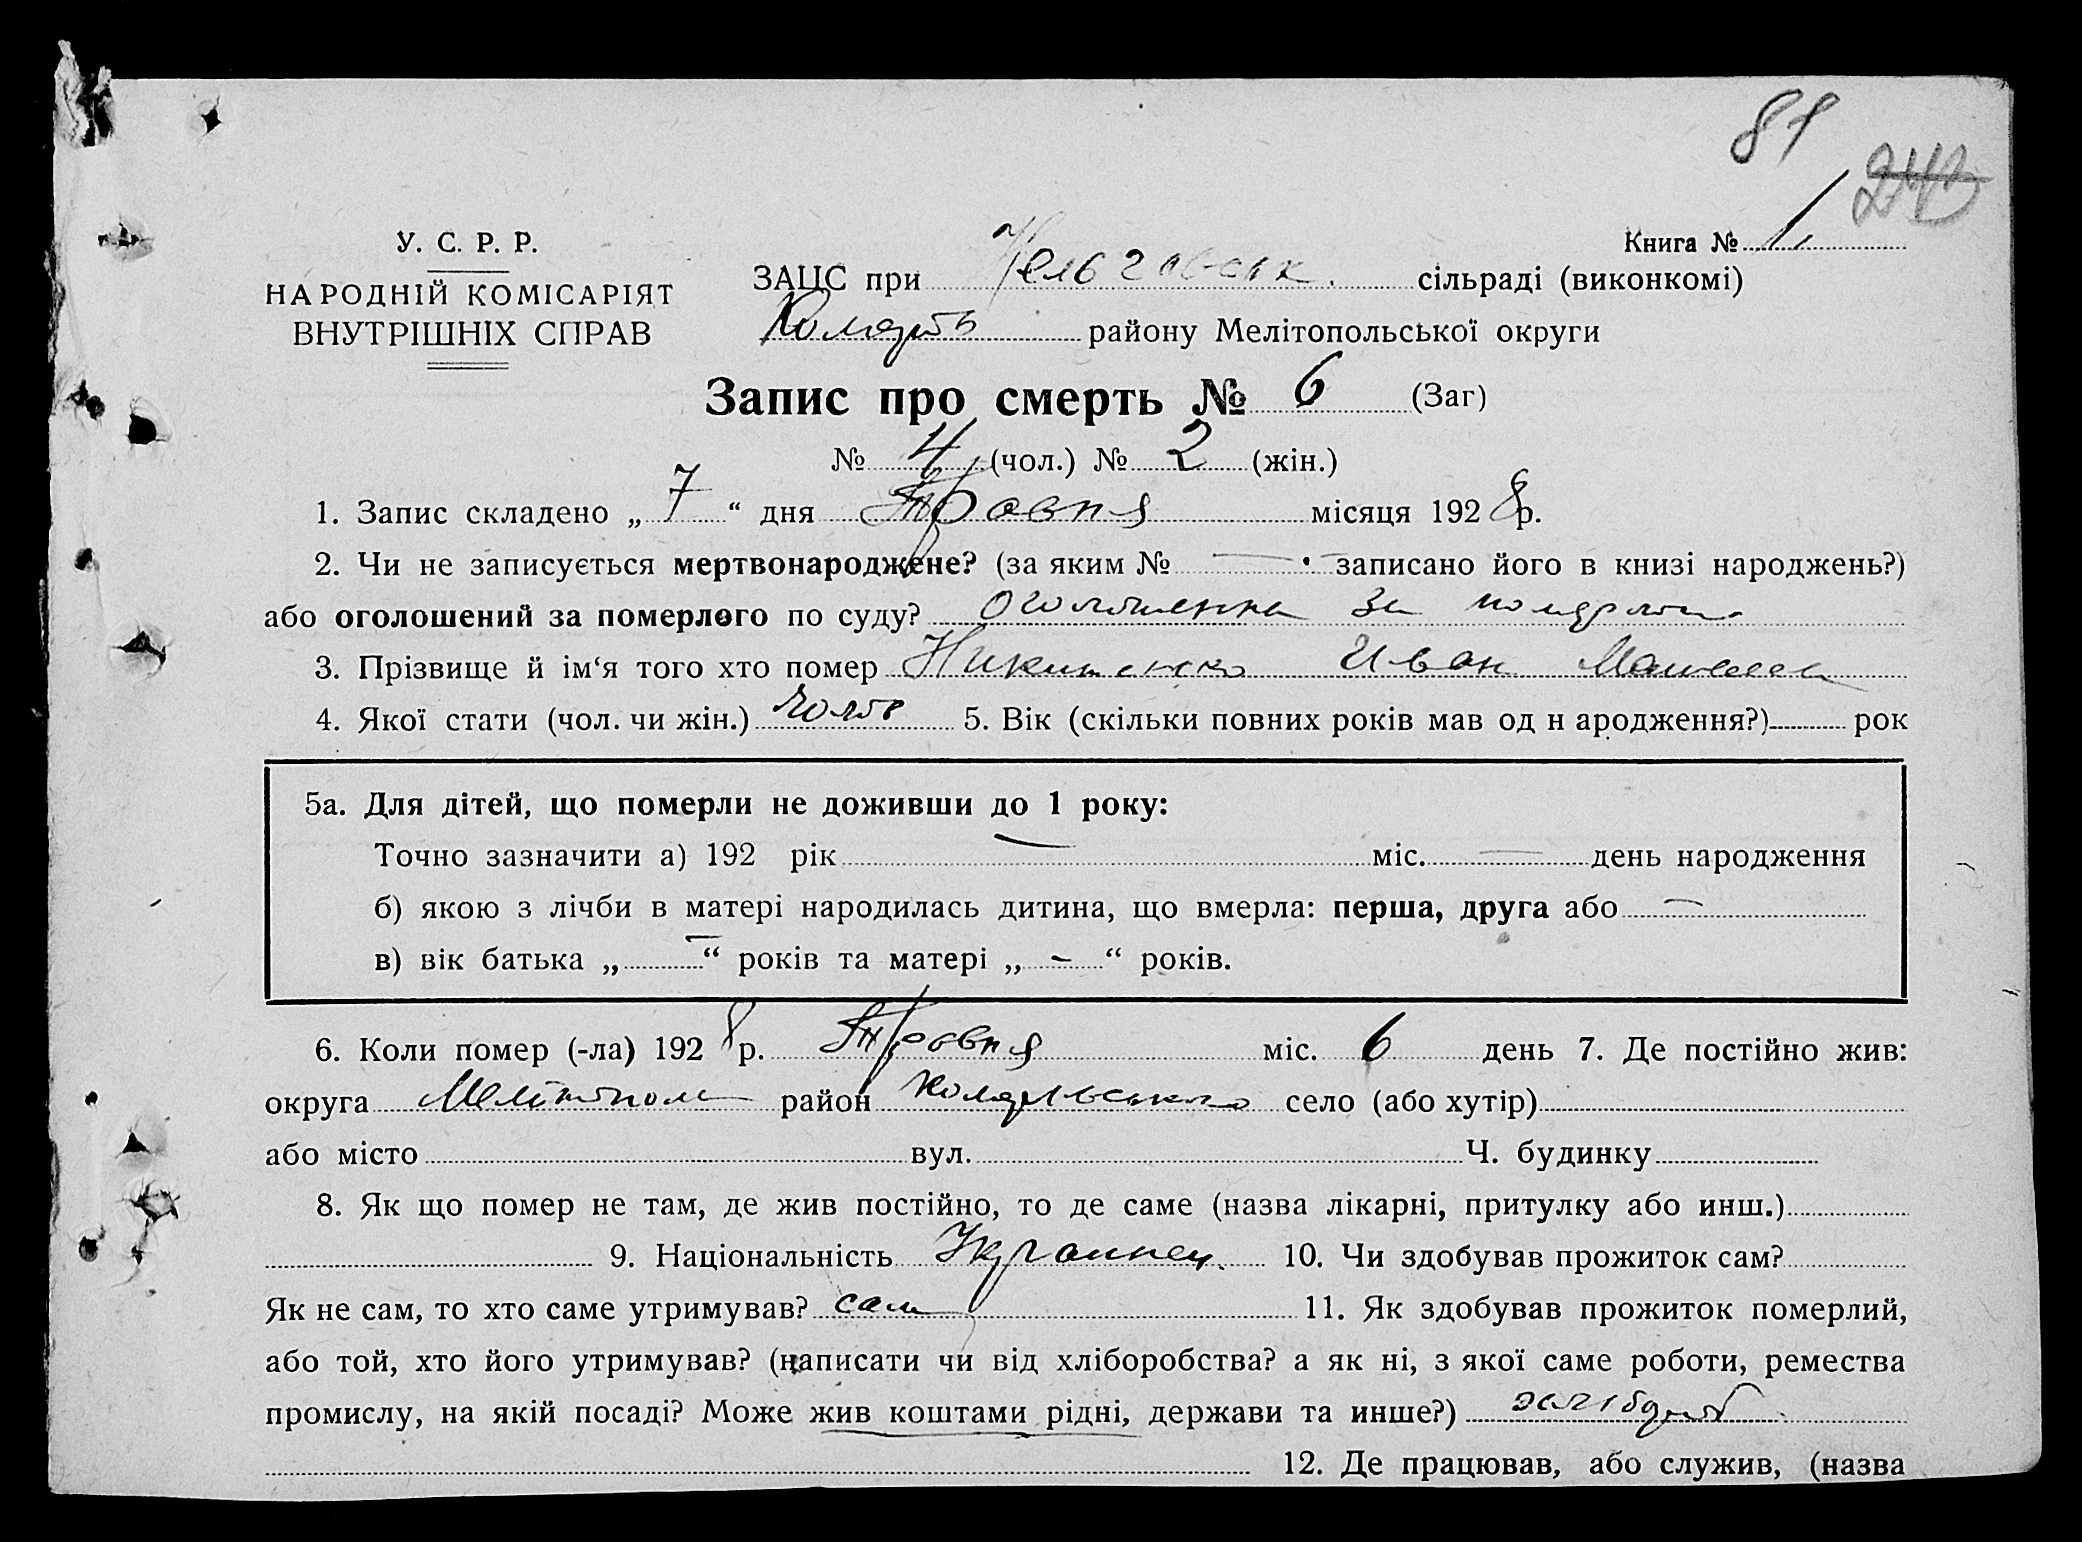 81
242
У. С. Р. Р.
НАРОДНІЙ КОМІСАРІЯТ
ВНУТРІШНІХ СПРАВ
Книга № 1
ЗАЦС при сільраді (виконкомі)
району Мелітопольської округи
Запис про смерть № 6 (Заг)
№ 4 (чол.) № 2 (жін.)
1. Запис складено „ 7 “ дня Травня місяця 1928 р.
2. Чи не записується мертвонароджене? (за яким № — записано його в книзі народжень?)
або оголошений за померлого по суду? за
3. Прізвище й ім‘я того хто помер Никитенко Иван
4. Якої стати (чол. чи жін.) 5. Вік (скільки повних років мав од н ародження?) рок
5а. Для дітей, що померли не доживши до 1 року:
Точно зазначити а) 192 рік — міс. — день народження
б) якою з лічби в матері народилась дитина, що вмерла: перша, друга або —
в) вік батька „ — “ років та матері „ - “ років.
6. Коли помер (-ла) 1928 р. Травня міс. 6 день 7. Де постійно жив:
округа Мелітопол район село (або хутір)
або місто вул. Ч. будинку
8. Як що помер не там, де жив постійно, то де саме (назва лікарні, притулку або инш.)
9. Національність Украинец. 10. Чи здобував прожиток сам?
Як не сам, то хто саме утримував? сам 11. Як здобував прожиток померлий,
або той, хто його утримував? (написати чи від хліборобства? а як ні, з якої саме роботи, ремества
промислу, на якій посаді? Може жив коштами рідні, держави та инше?)
12. Де працював, або служив, (назва